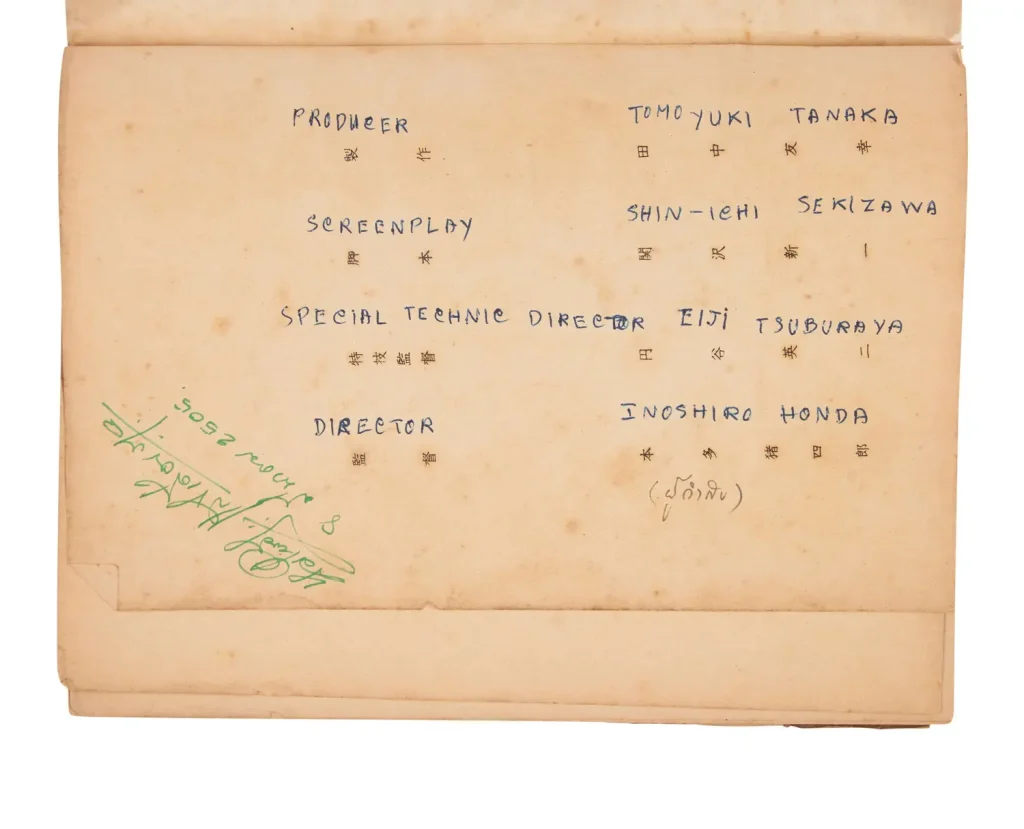 PRODUCER TOMOYUKI TANAKA
製作 田中友幸
SCREENPLAY SHIN-ICHI SEKIZAWA
脚本 関沢新一
SPECIAL TECHNIC DIRECTOR EIJI TSUBURAYA
特技監督 円谷英二
DIRECTOR INOSHIRO HONDA
監督 本多猪四郎
(ผู้กำกับ)
8 2505